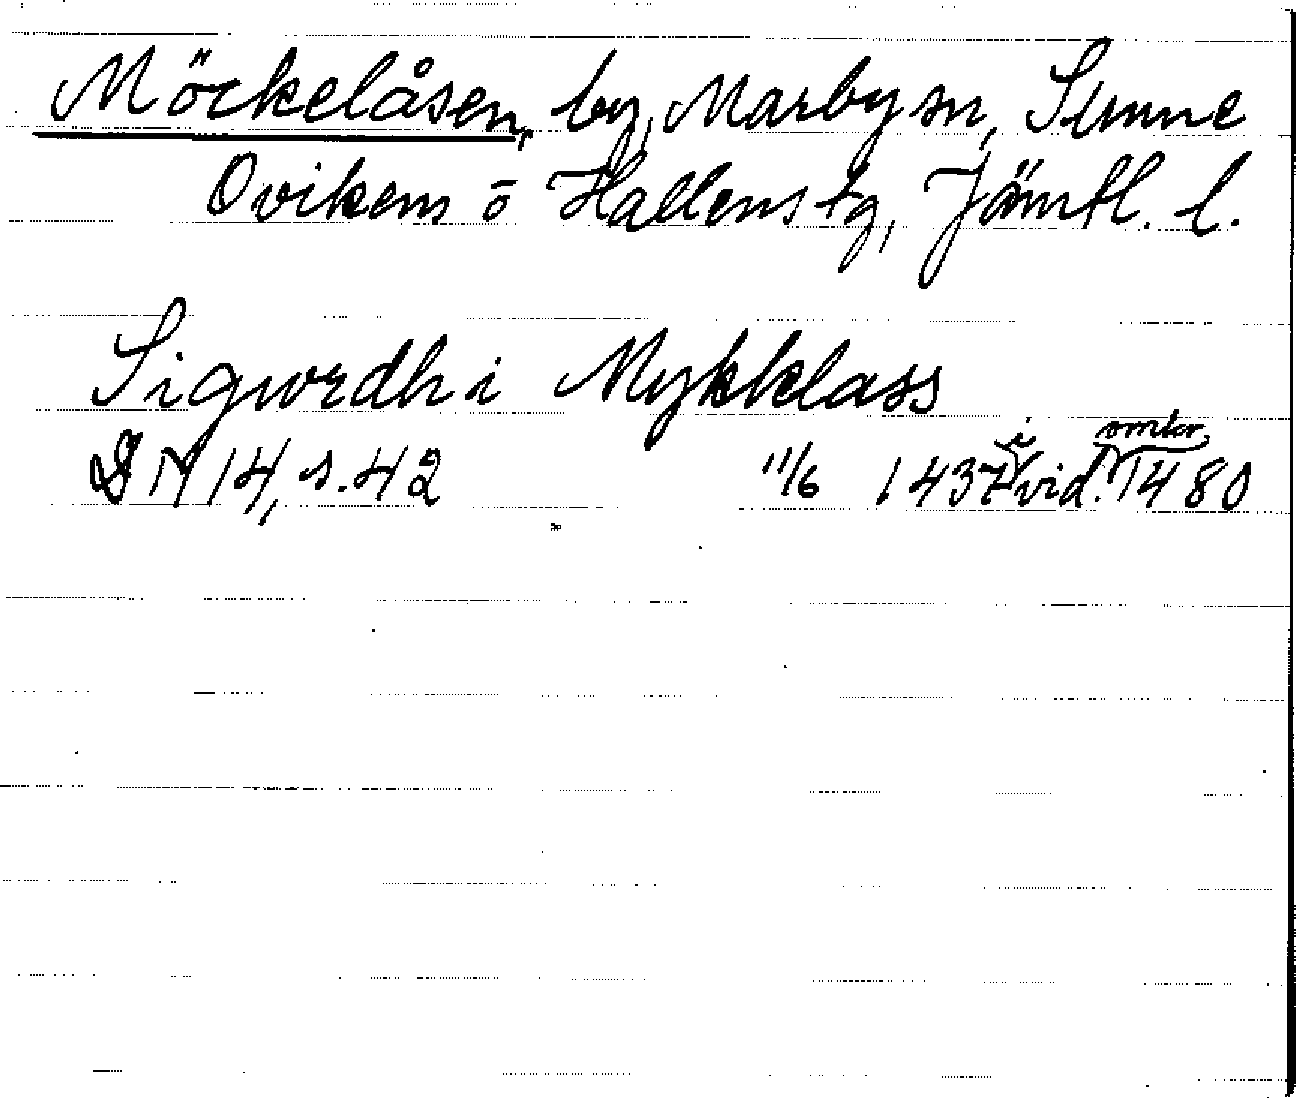 Möckelåsen, by, Marby sn, Sunne
Ovikens o Hallens tg, Jämtl. l.
Sigwrdh i Mykklass
DN 14, s. 42 11/6 1437 i vid. omkr 1480